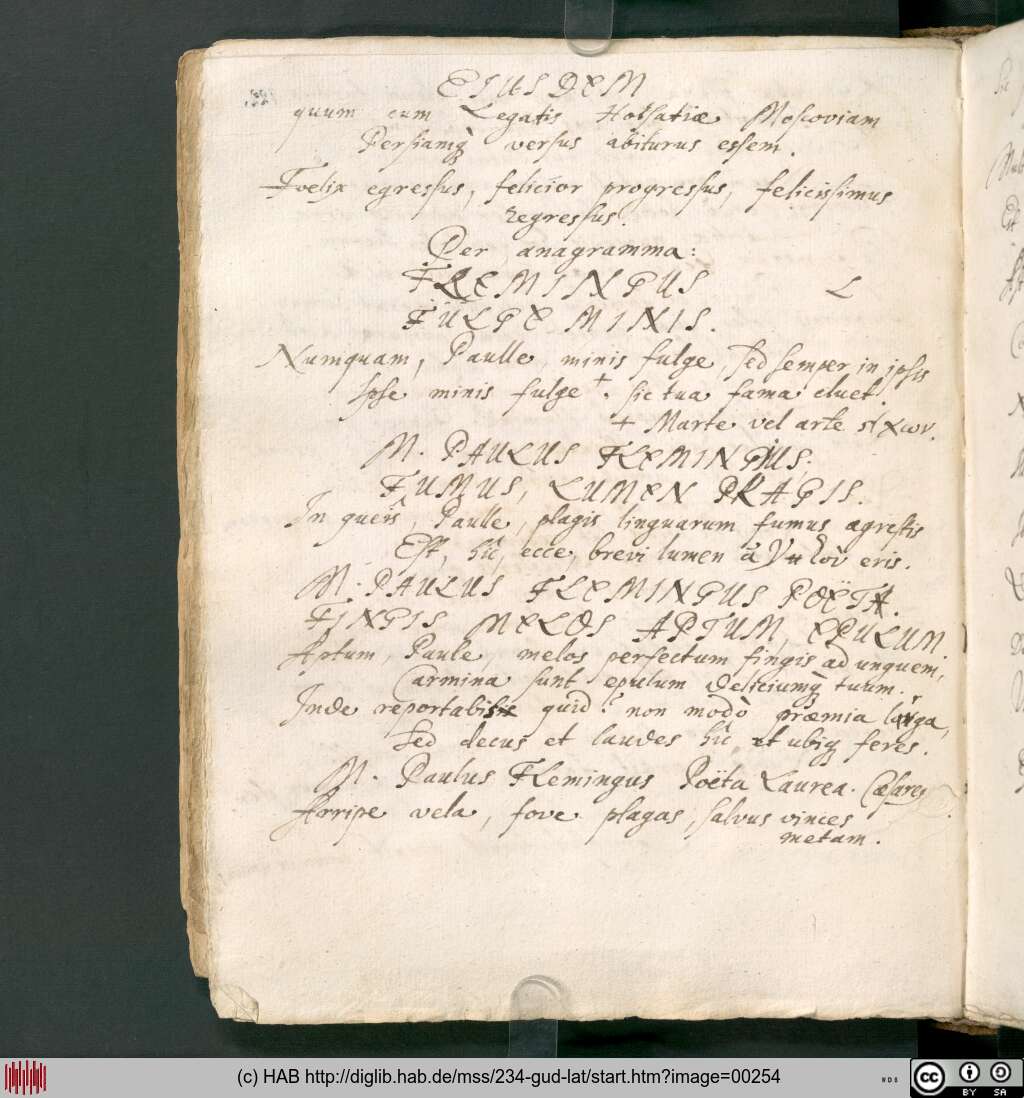 EJUSDEM
quum cum Legatis Holsatiæ Moscoviam
Persiamq̀ versus abiturus essem.
Foelix egressus, felicior progressus, felicissimus
regressus.
Per anagramma:
FLEMINGUS
L
FULGE MINIS.
Numquam, Paulle, minis fulge, sed semper in ipsis
Ipse minis fulge +. sic tua fama cluet.
+ Marte vel arte
M. PAULUS FLEMINGUS.
FUMUS, LUMEN PLAGIS.
In queis, Paulle, plagis linguarum fumus agrestis
Est, hîc, ecce, brevi lumen eris.
M. PAULUS FLEMINGUS POËTA.
FINGIS MELOS APTUM, EPULUM.
Aptum, Paule, melos perfectum fingis ad unguem,
Carmina sunt epulum deliciumq̀ tuum.
Inde reportabis quid? non modò præmia larga,
Sed decus et laudes hîc et ubiq feres.
M. Paulus Flemingus Poëta Laurea. Cæsareq
Arripe vela, fove plagas, salvus vinces
metam.
(c) HAB http://diglib.hab.de/mss/234-gud-lat/start.htm?image=00254
WDB
cc
BY SA